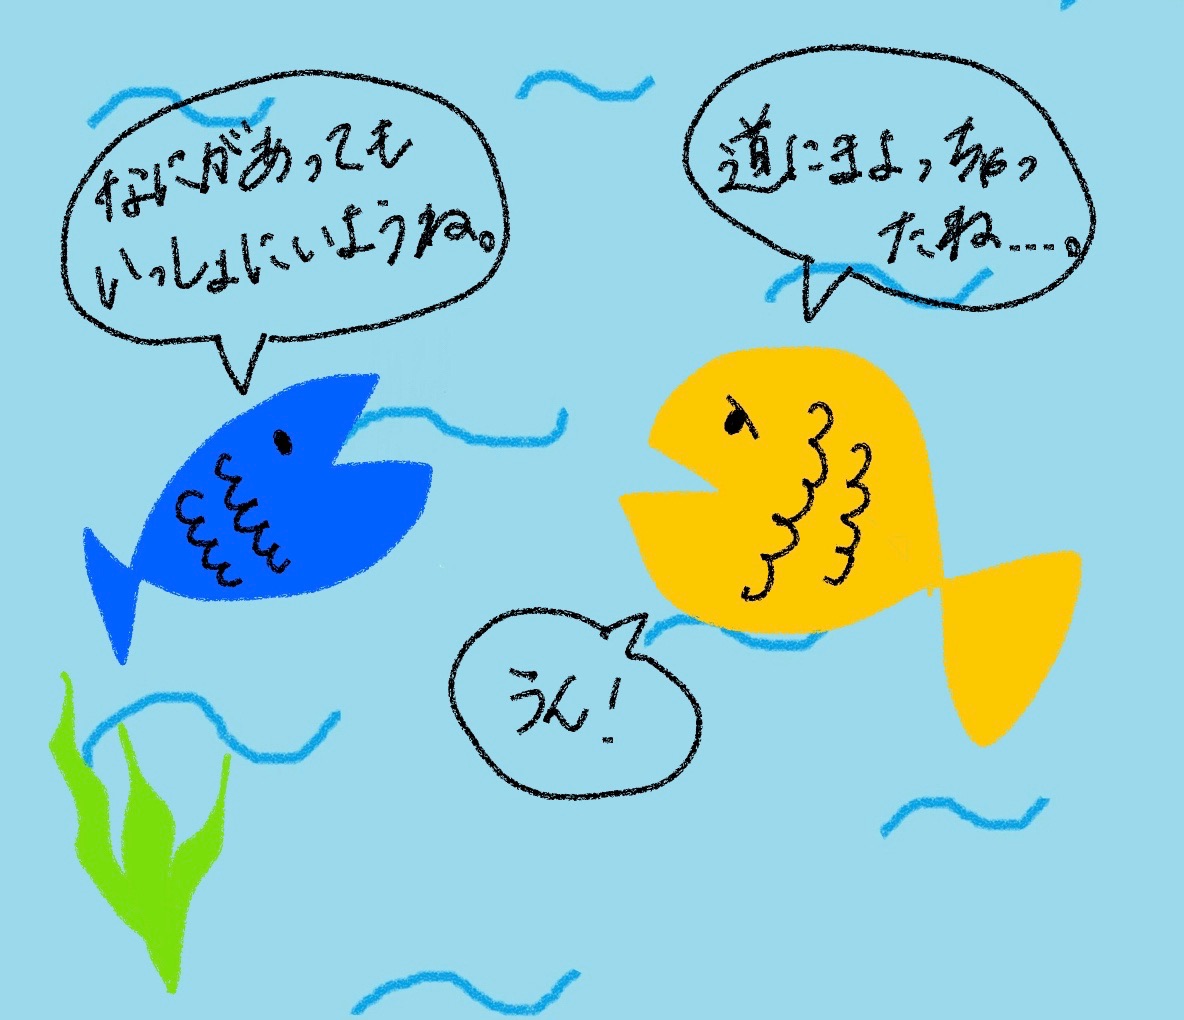 道にまよっちゃっ
たね....。
なにがあっても
いっしょにいようね。
うん!